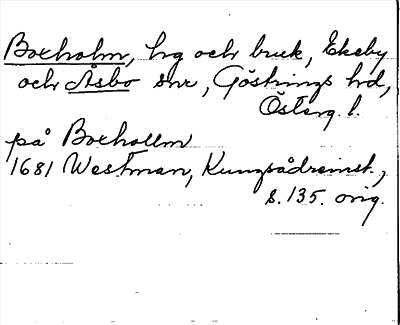 Boxholm, hg och bruk, Ekeby
och Åsbo snr, Göstrings hd,
Österg. l.
på Boxhollm
1681 Westman, Kungsådreinst.,
s. 135. orig.